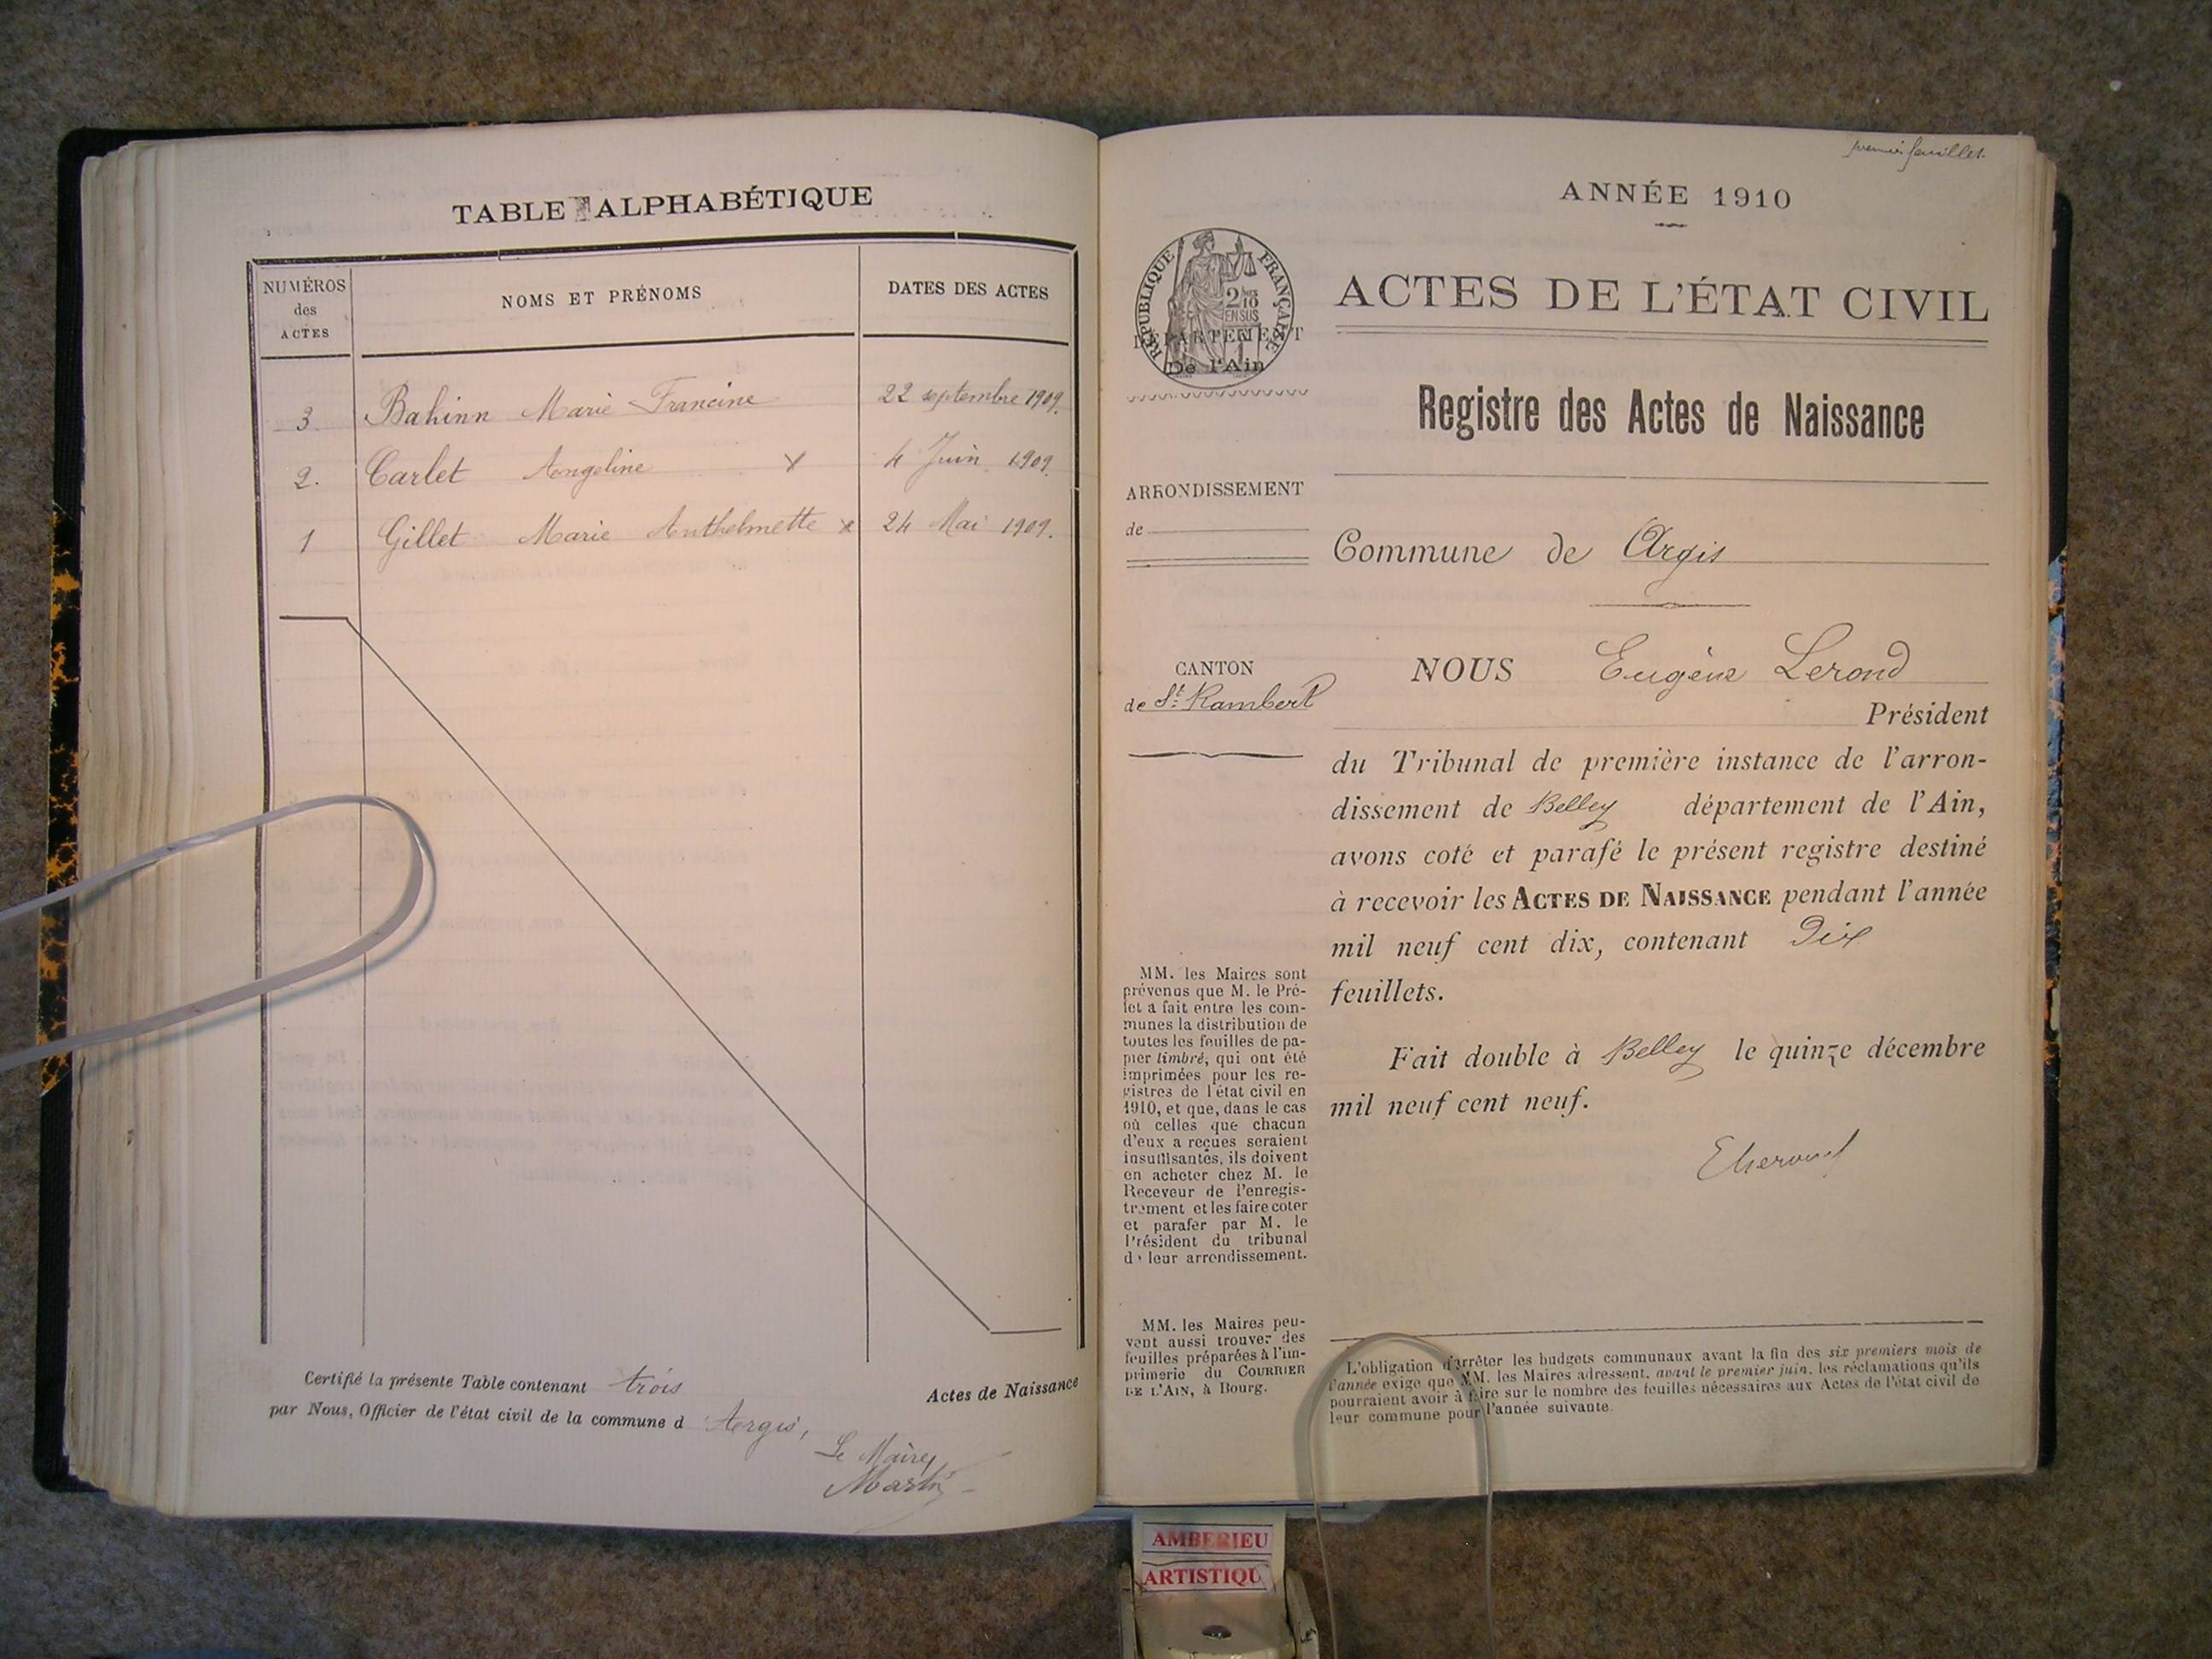 TABLE ALPHABÉTIQUE
NUMÉROS
des
ACTES
NOMS ET PRÉNOMS
DATES DES ACTES
3 Bahinn Marie Francine 22 septembre 1909.
2. Carlet Angeline x 4 Juin 1909.
1 Gillet Marie Anthelmette x 24 Mai 1909.
Certifié la présente Table contenant trois
Actes de Naissance
par Nous, Officier de l'état civil de la commune d Argis,
Le Maire,
Martin
premier feuillet.
ANNÉE 1910
RÉPUBLIQUE FRANÇAISE
DÉPARTEMENT
De l'Ain
ACTES DE L'ÉTAT CIVIL
Registre des Actes de Naissance
ARRONDISSEMENT
de
Commune de Argis
CANTON
de St. Rambert
NOUS Eugène Lerond
Président
du Tribunal de première instance de l'arron-
dissement de Belley département de l'Ain,
avons coté et parafé le présent registre destiné
à recevoir les ACTES DE NAISSANCE pendant l'année
mil neuf cent dix, contenant Dix
feuillets.
Fait double à Belley le quinze décembre
mil neuf cent neuf.
MM. les Maires sont
prévenus que M. le Pré-
fet a fait entre les com-
munes la distribution de
toutes les feuilles de pa-
pier timbré, qui ont été
imprimées pour les re-
gistres de l'état civil en
1910, et que, dans le cas
où celles que chacun
d'eux a reçues seraient
insuffisantes, ils doivent
en acheter chez M. le
Receveur de l'enregis-
trement et les faire coter
et parafer par M. le
Président du tribunal
de leur arrondissement.
MM. les Maires peu-
vent aussi trouver des
feuilles préparées à l'im-
primerie du COURRIER
DE L'AIN, à Bourg.
L'obligation d'arrêter les budgets communaux avant la fin des six premiers mois de
l'année exige que MM. les Maires adressent, avant le premier juin, les réclamations qu'ils
pourraient avoir à faire sur le nombre des feuilles nécessaires aux Actes de l'état civil de
leur commune pour l'année suivante.
AMBERIEU
ARTISTIQU